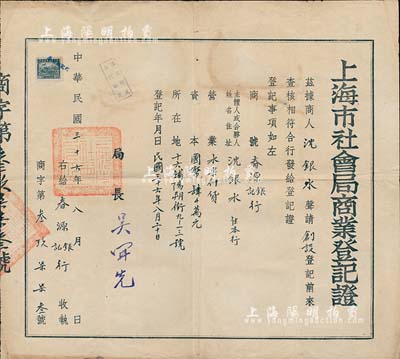 上海市社會局商業登記證
茲據商人沈銀水聲請創設登記前來
查核相符合行發給登記證
登記事項如左
商號 春源銀記行
主體人或合夥人姓名住址 沈銀水 住本行
營業 水
資本 國幣肆千萬元
所在地
登記年月日 民國三十六年八月二十日
局長 吳開先
右給春源銀記行收執
商字第叁玖柒柒叁號
中華民國三十六年八月 日
上海陽明拍賣
www.yangmingauction.com